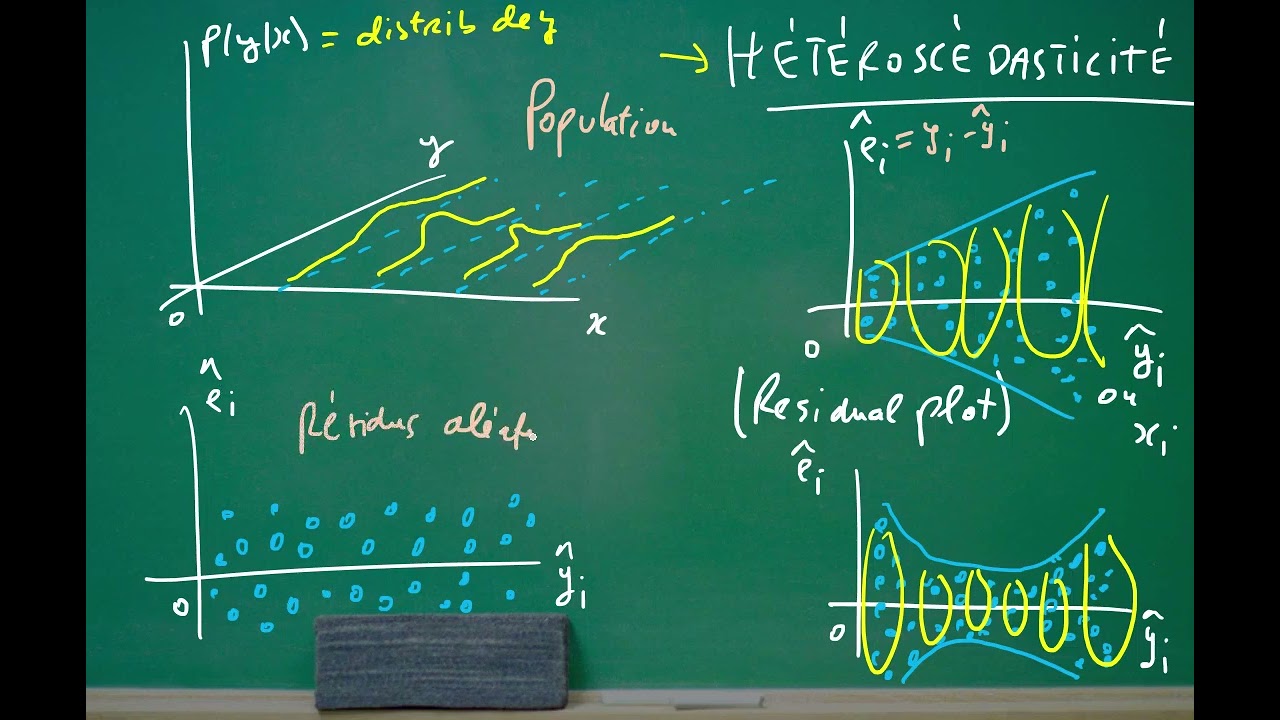 P(y|x) = distrib de y
→ HÉTÉROSCÉDASTICITÉ
Population
y
0
x
êi = yi - ŷi
0
ŷi
ou
xi
(Residual plot)
êi
Résidus aléato
0
ŷi
êi
0
ŷi